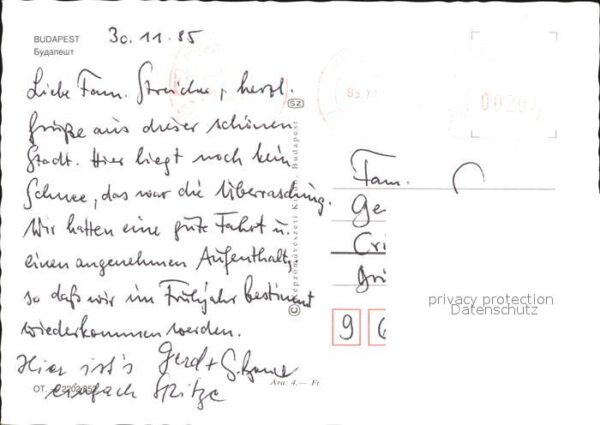 BUDAPEST
Будапешт
30.11.85
Liebe Fam. herzl.
Grüße aus dieser schönen
Stadt. Hier liegt noch kein
Schnee, das war die Überraschung.
Wir hatten eine gute Fahrt u.
einen angenehmen Aufenthalt,
so daß wir im Frühjahr bestimmt
wiederkommen werden.
Hier ist's Gerd +
einfach Spitze
OT.
Ára: 4,— Ft
SZ
© Képzőművészeti Kiadó, Budapest
Fam.
Ge
Cri
9 6
privacy protection
Datenschutz